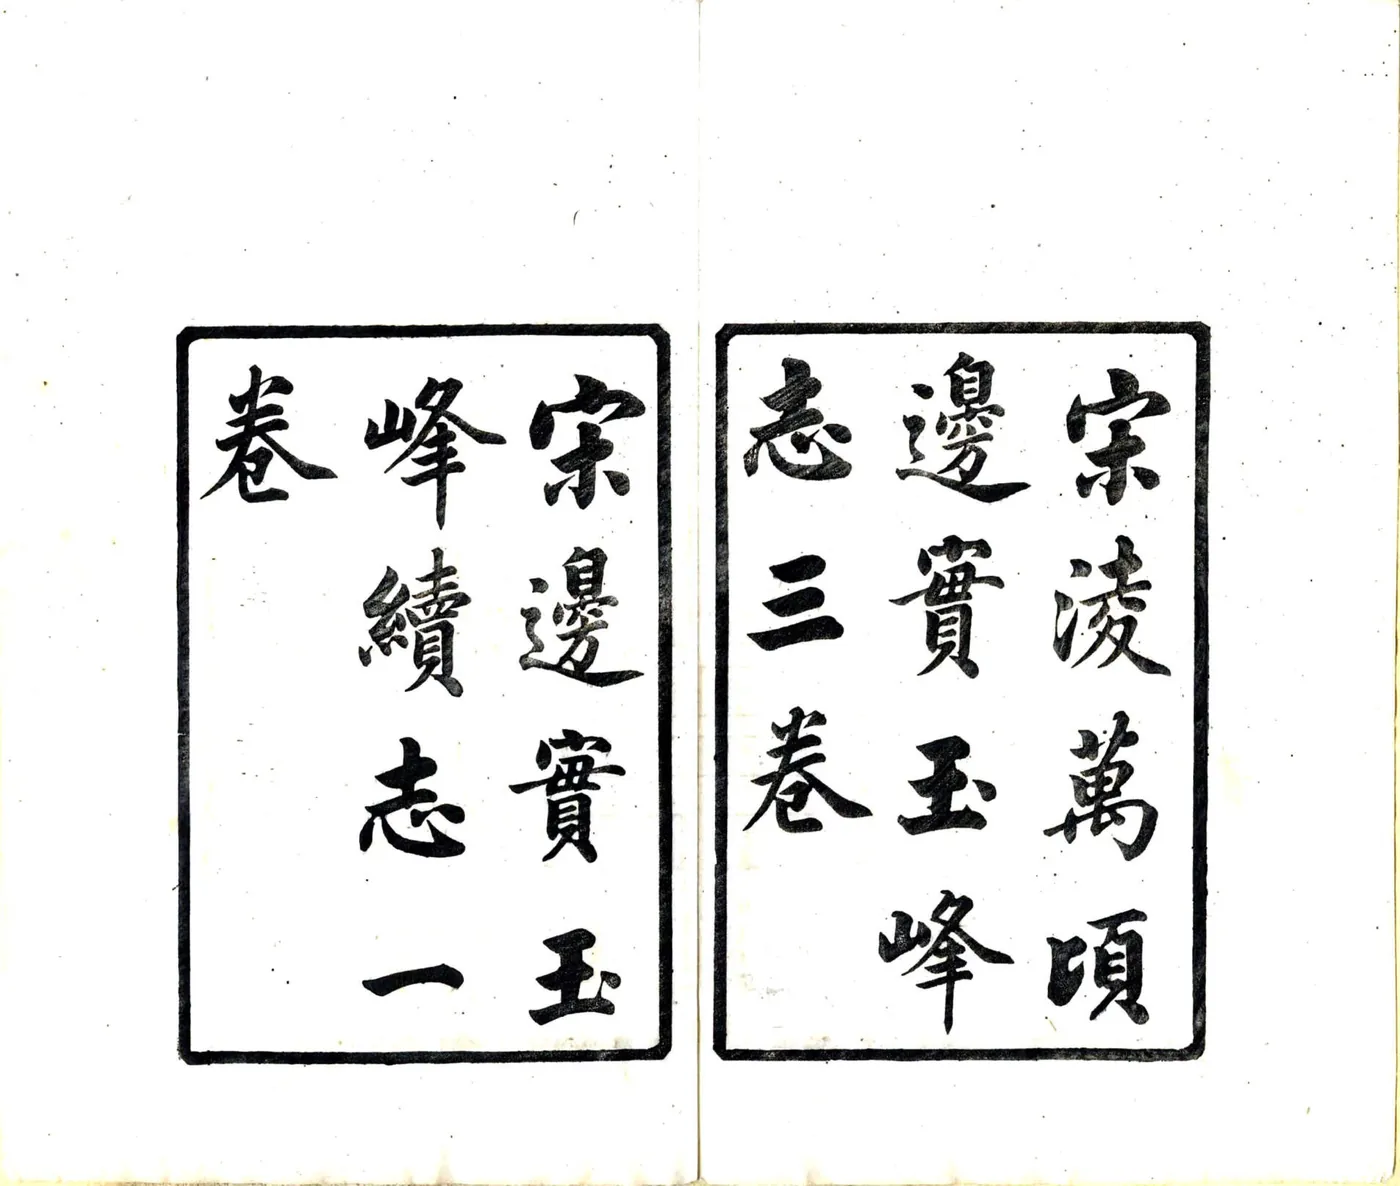 宋淩萬頃
邊實玉峰
志三卷
宋邊實玉
峰續志一
卷